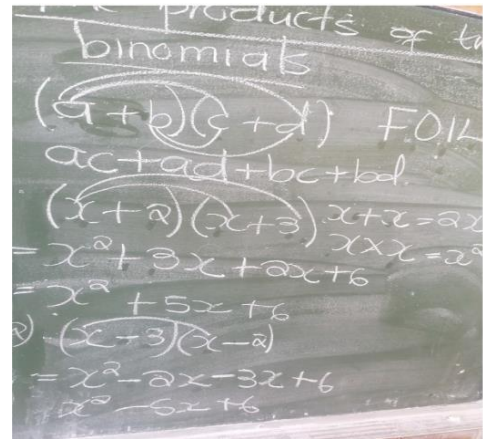 The products of tw
binomials
(a+b)(c+d) FOIL
ac+ad+bc+bd.
(x+2)(x+3) x+x=2x
= x²+3x+2x+6 x×x=x²
= x² +5x+6
2) (x-3)(x-2)
= x²-2x-3x+6
x²-5x+6